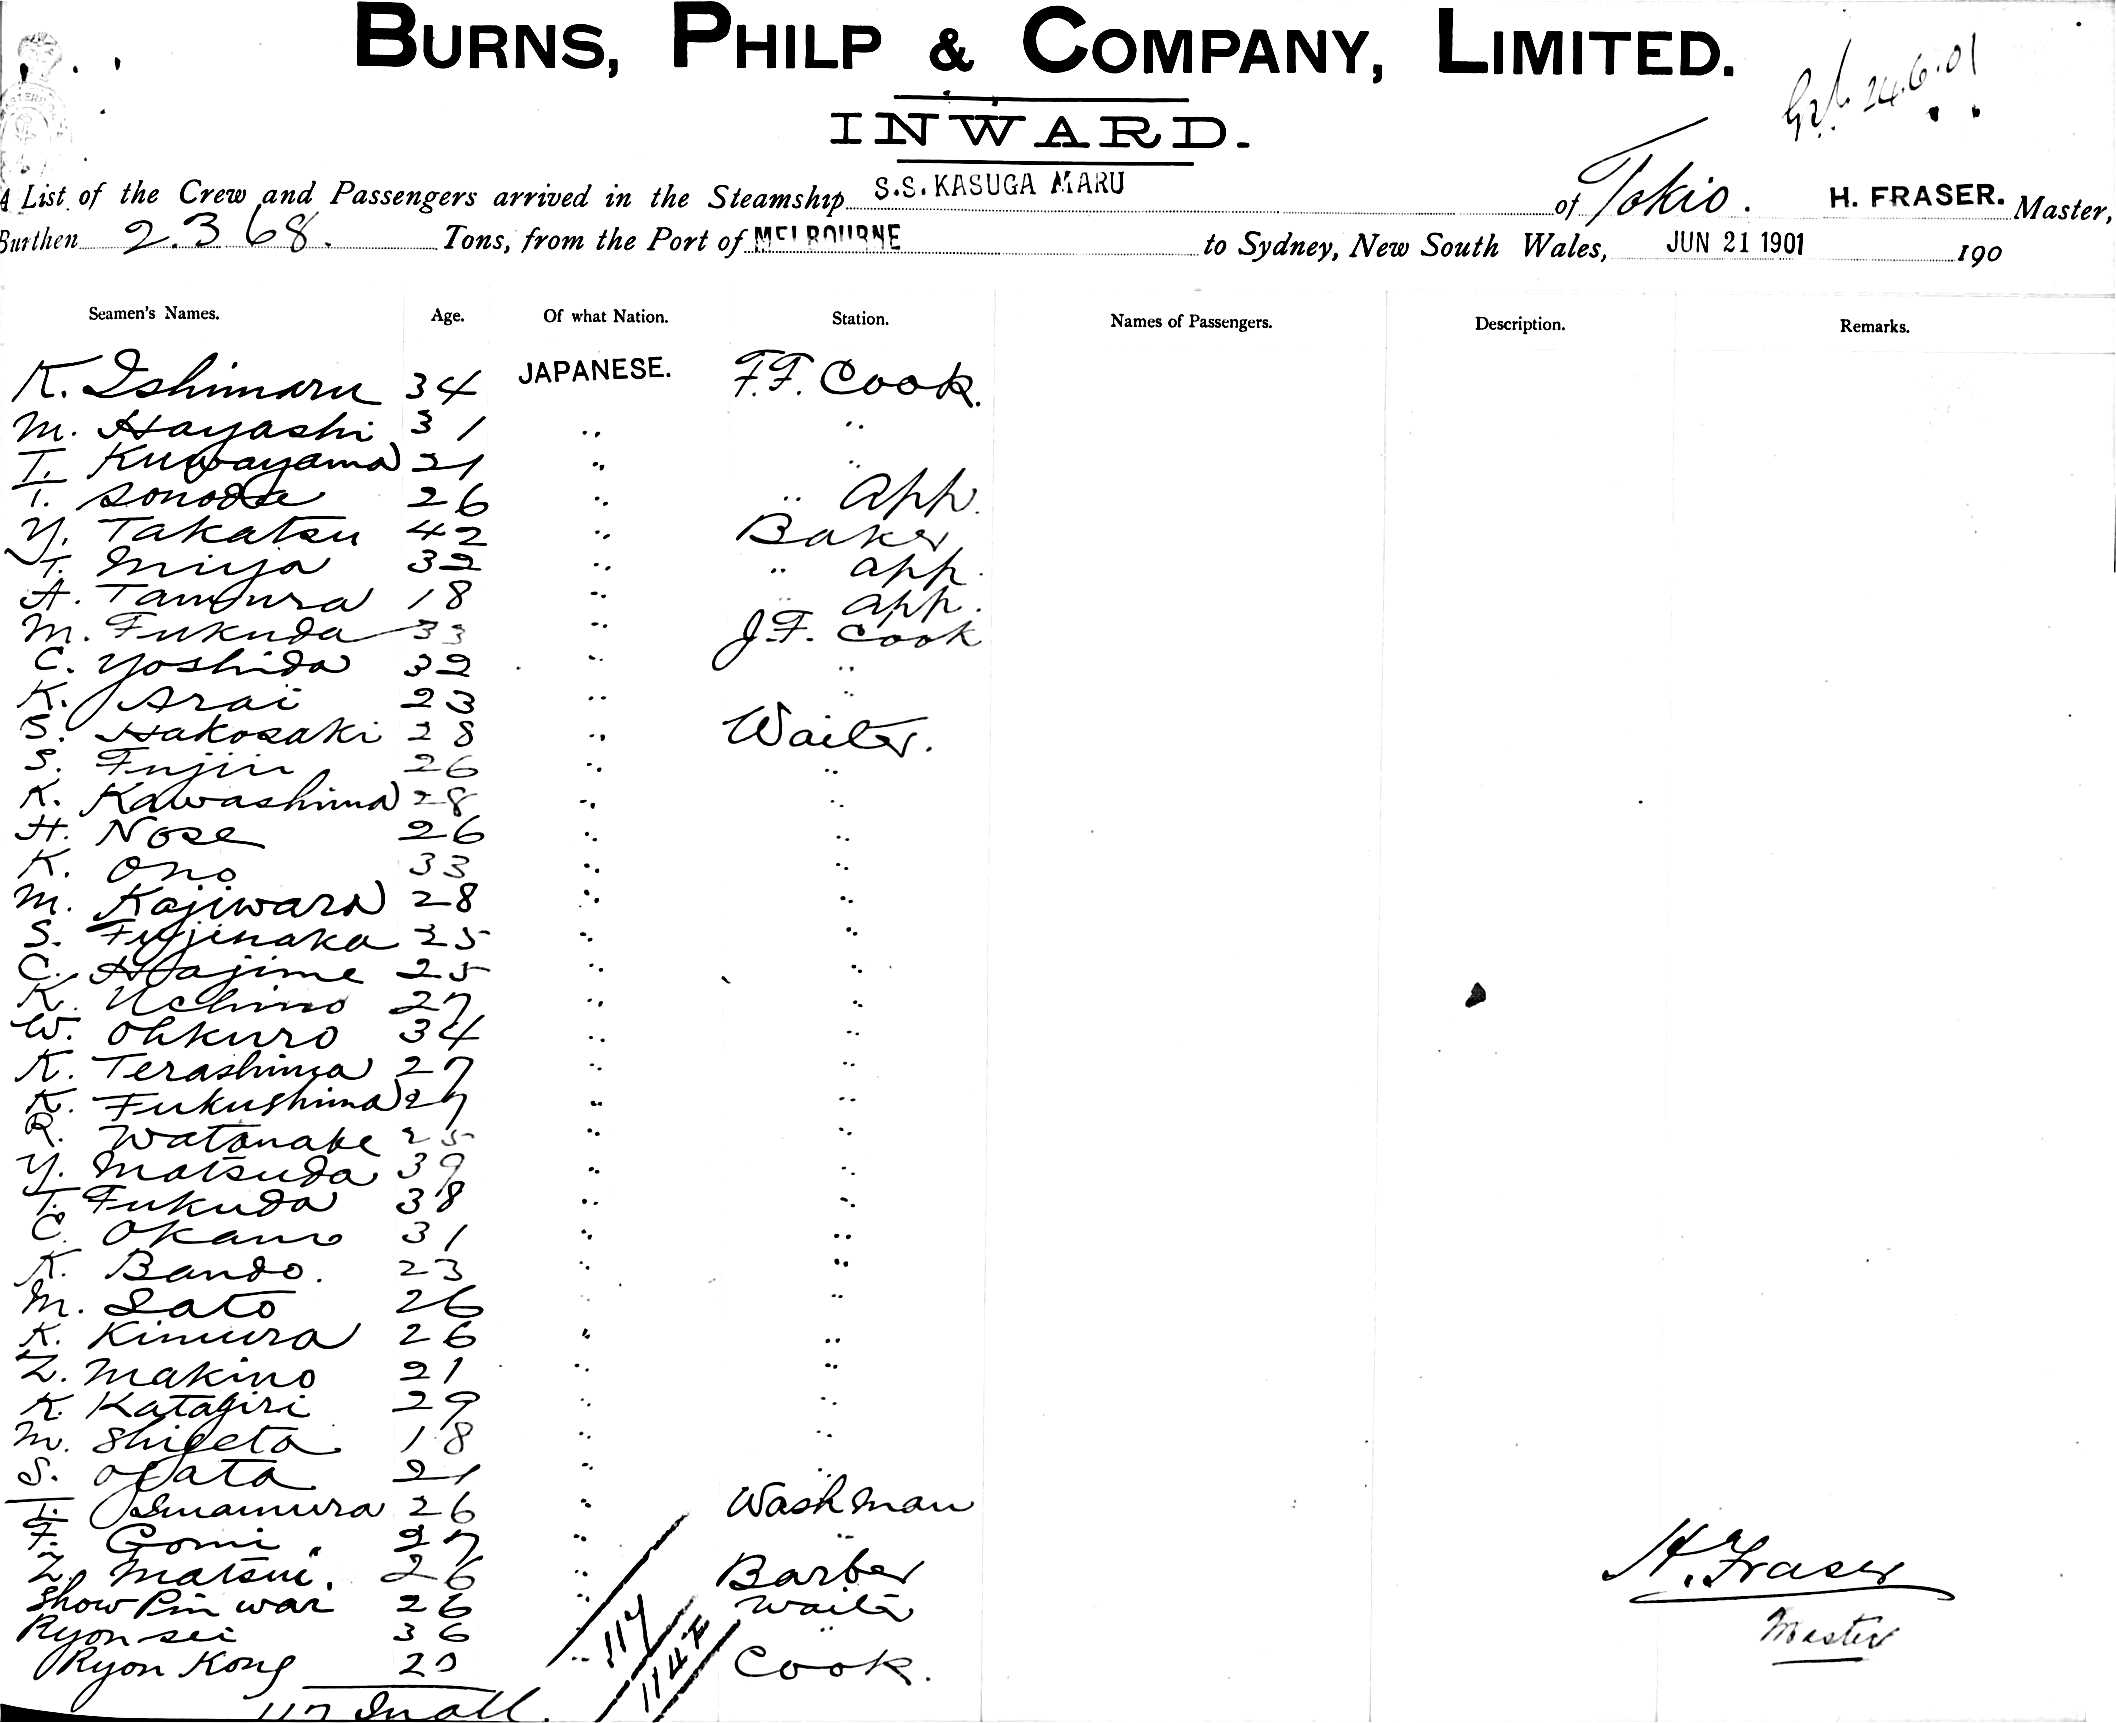 BURNS, PHILP & COMPANY, LIMITED.
24.6.01
INWARD.
A List of the Crew and Passengers arrived in the Steamship S.S. KASUGA MARU of Tokio. H. FRASER. Master,
Burthen 2.368. Tons, from the Port of MELBOURNE to Sydney, New South Wales, JUN 21 1901 190
Seamen's Names. Age. Of what Nation. Station. Names of Passengers. Description. Remarks.
K. Ishimaru 34 JAPANESE. F.F. Cook.
M. Hayashi 31 " "
T. Kuwayama 21 " "
T. Sonoda 26 " " app.
Y. Takatsu 42 " Baker
T. Miya 32 " " app.
A. Tamura 18 " " app.
M. Fukuda 33 " J.F. Cook
C. Yoshida 32 " "
K. Arai 23 " "
S. Hakosaki 28 " Waiter.
S. Fujii 26 " "
K. Kawashima 28 " "
H. Nose 26 " "
K. Ono 33 " "
M. Kajiwara 28 " "
S. Fujinaka 25 " "
C. Hajime 25 " "
K. Uchino 27 " "
W. Ohkuro 34 " "
K. Terashima 27 " "
K. Fukushima 27 " "
R. Watanabe 25 " "
Y. Matsuda 39 " "
T. Fukuda 38 " "
C. Okano 31 " "
K. Bando. 23 " "
M. Sato 26 " "
K. Kimura 26 " "
Z. Makino 21 " "
K. Katagiri 29 " "
M. Shigeta 18 " "
S. Ogata 21 " "
T. Imamura 26 " Washman
F. Gomi. 27 " "
Z. Matsui. 26 " Barber
Show Pin War 26 " Waiter
Ryon Sei 36 "
Ryon Kong " Cook.
117 In all.
117
H. Fraser
Master